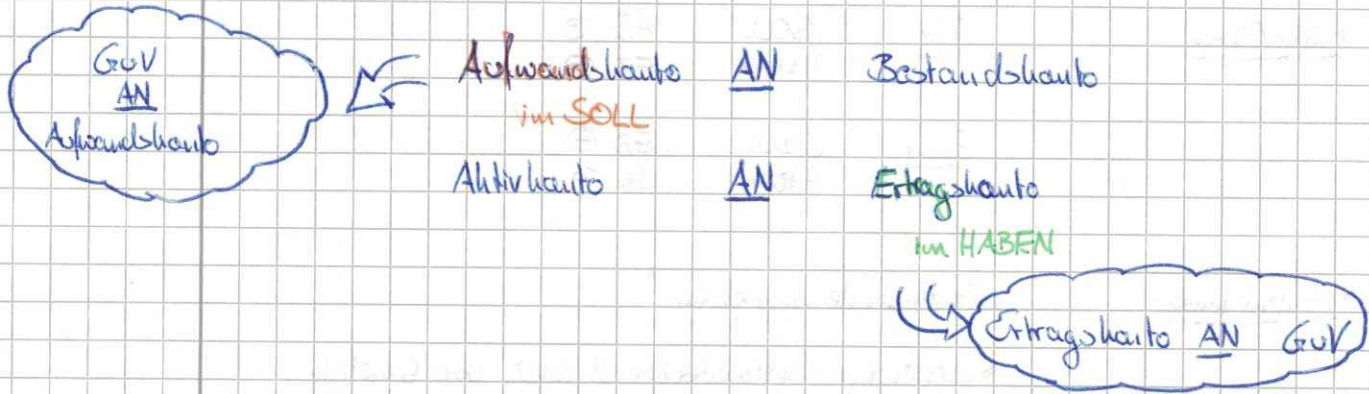 GuV
AN
Aufwandskonto
Aufwandskonto AN Bestandskonto
im SOLL
Aktivkonto AN Ertragskonto
im HABEN
Ertragskonto AN GuV